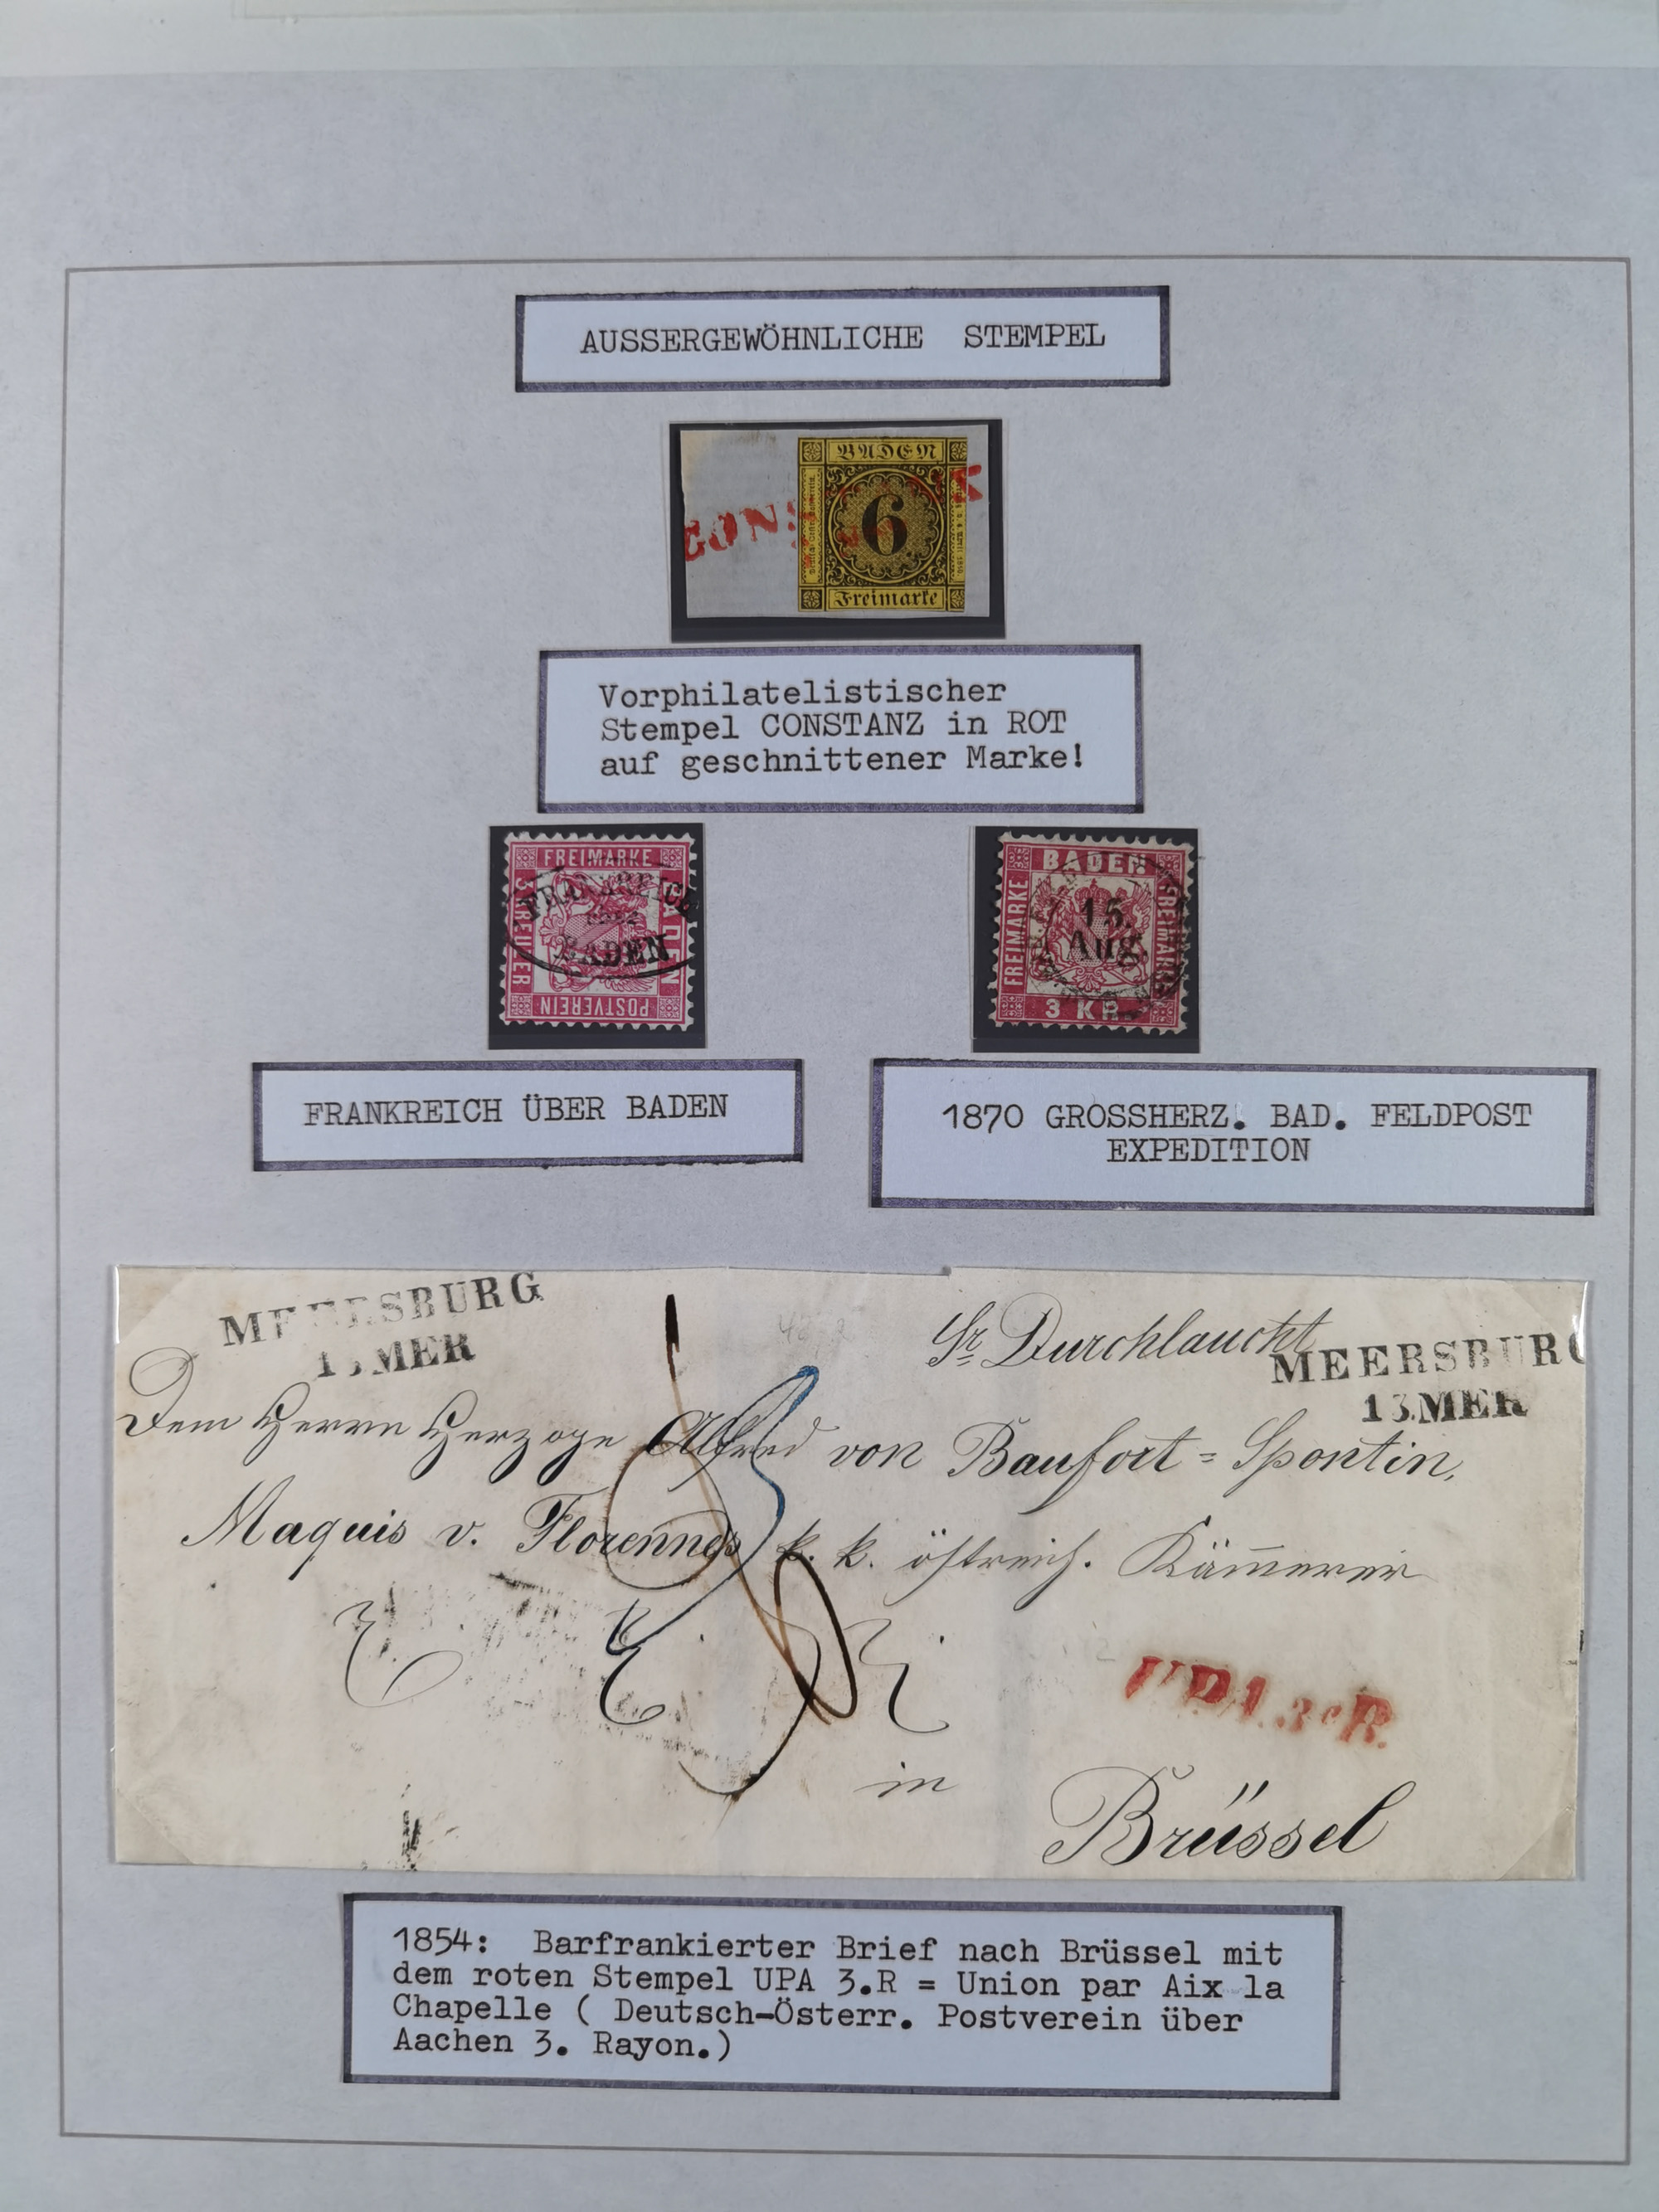 AUSSERGEWÖHNLICHE STEMPEL
BADEN
CONS
6
Freimarke
Vorphilatelistischer
Stempel CONSTANZ in ROT
auf geschnittener Marke!
FREIMARKE
3 KREUZER
BADEN
POSTVEREIN
FRANKREICH
BADEN
BADEN
FREIMARKE
15.
Aug.
3 KR.
FRANKREICH ÜBER BADEN
1870 GROSSHERZ. BAD. FELDPOST
EXPEDITION
MEERSBURG
13.MER
Sr Durchlaucht
MEERSBURG
13.MER
Dem Herrn Herzoge Alfred von Baufort=Spontin,
Maquis v. Florennes k. k. östreich. Kämerer
UPA.3eR.
in
Brüssel
1854: Barfrankierter Brief nach Brüssel mit
dem roten Stempel UPA 3.R = Union par Aix la
Chapelle ( Deutsch-Österr. Postverein über
Aachen 3. Rayon.)